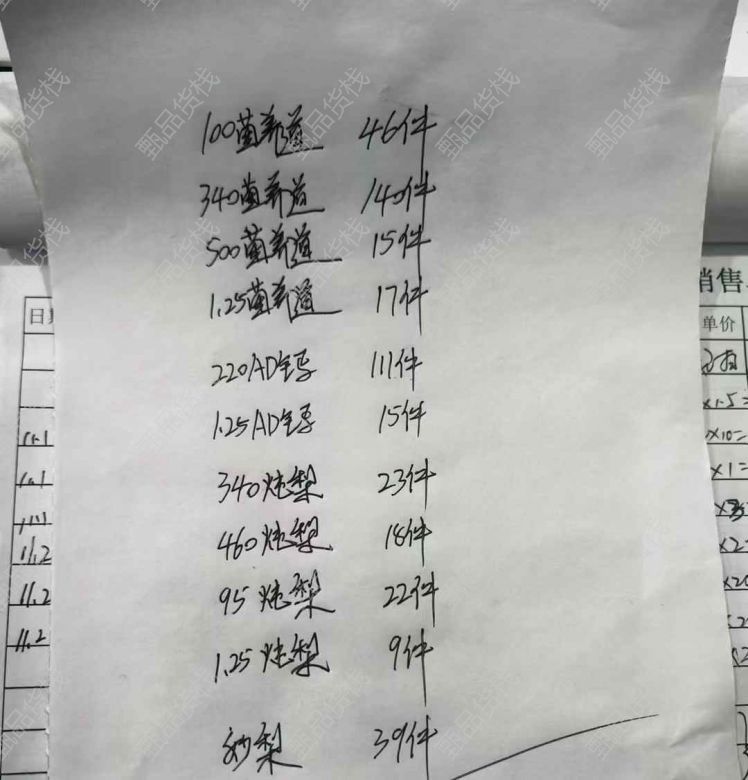 100菌养道 46件
340菌养道 140件
500菌养道 15件
1.25菌养道 17件
220AD钙 111件
1.25AD钙 15件
340炖梨 23件
460炖梨 18件
95炖梨 22件
1.25炖梨 9件
梨 39件
销售
日
单价
11.1
11.1
11.2
11.2
11.2
×1.5=
×10=
×1=
甄品货栈